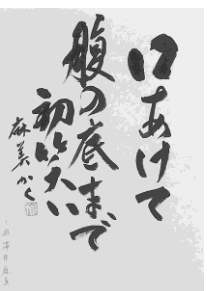 口あけて
腹の底まで
初笑い
麻美かく